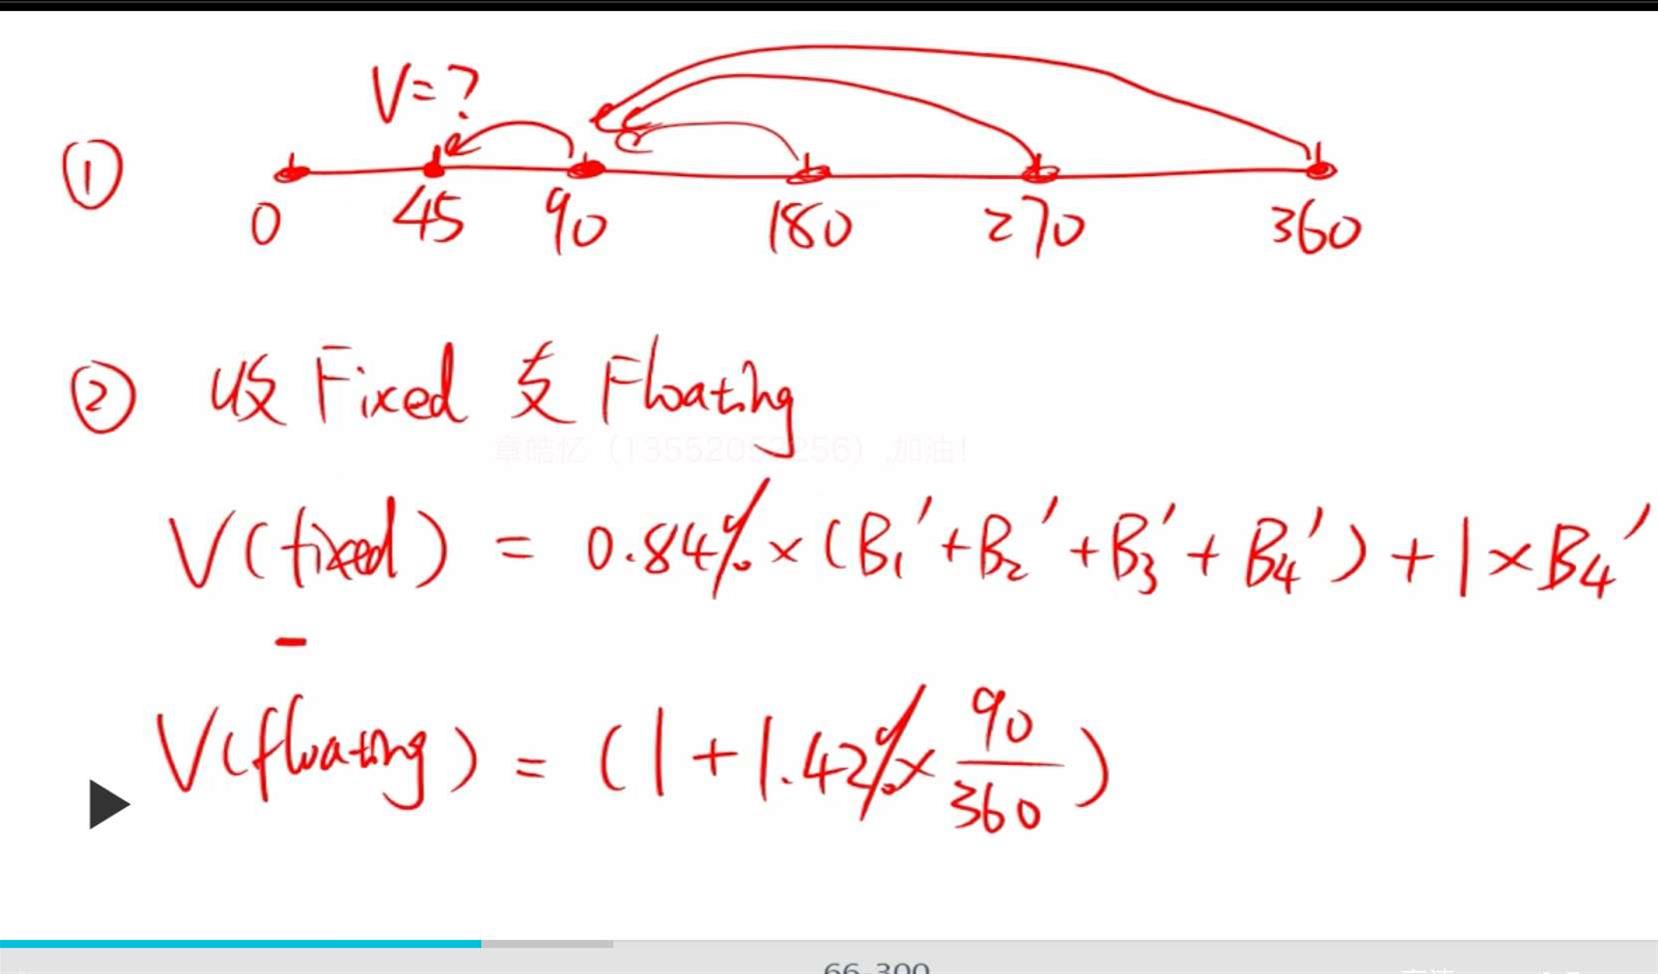 V=?
①
0 45 90 180 270 360
② 收 Fixed 支 Floating
章皓忆（13552052256）,加油！
V(fixed) = 0.84% × (B₁' + B₂' + B₃' + B₄') + 1 × B₄'
-
V(floating) = (1 + 1.42% × 90/360)
66-300